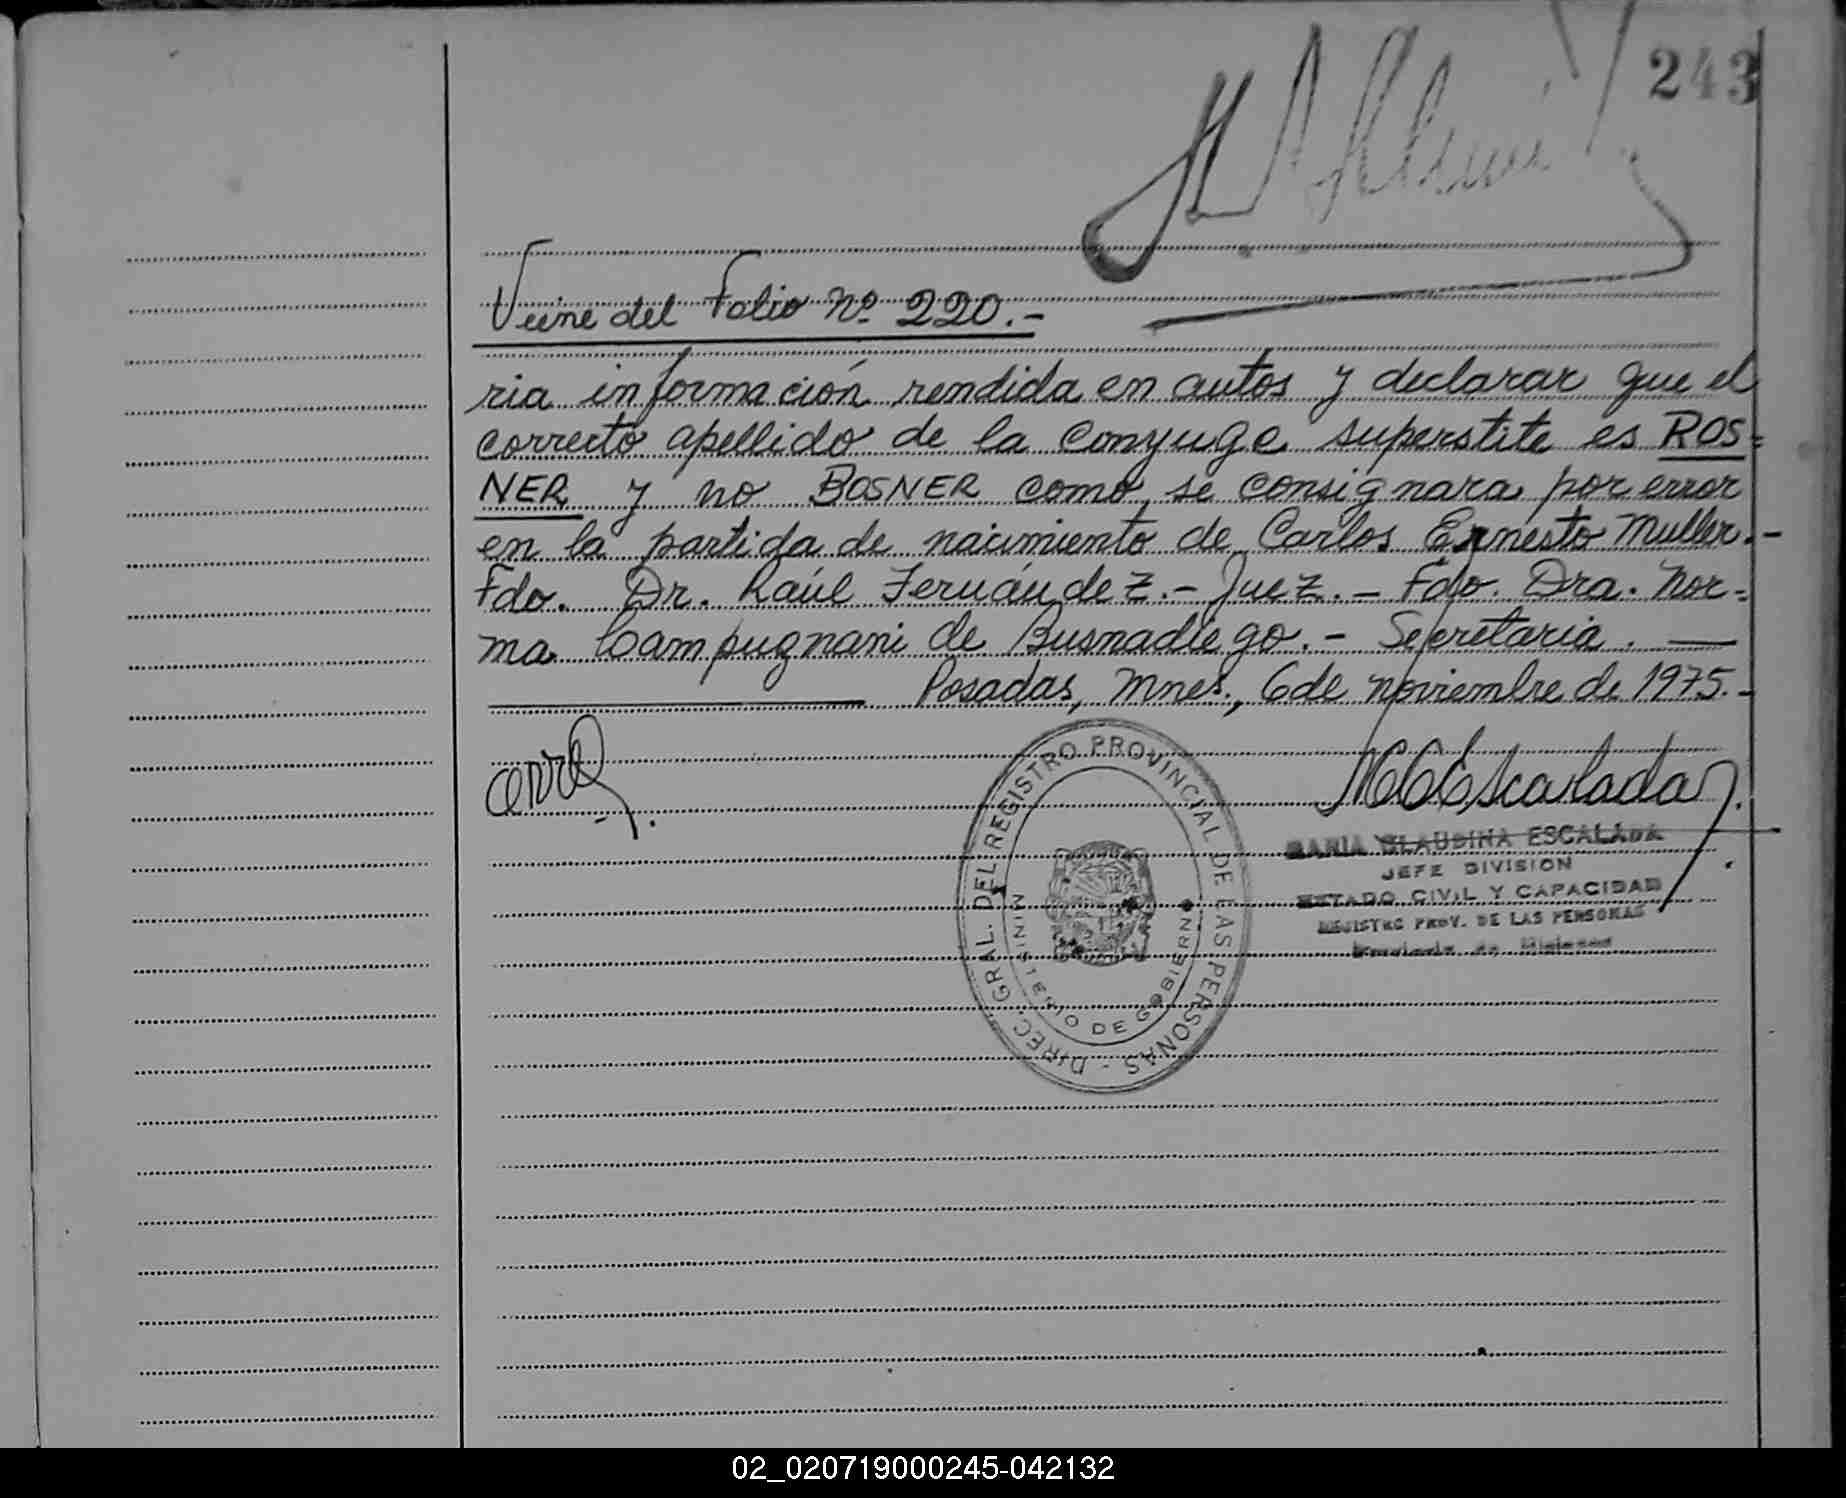 243
Viene del Folio Nº 220.-
ria información rendida en autos y declarar que el
correcto apellido de la conyuge superstite es ROS=
NER y no BOSNER como se consignara por error
en la partida de nacimiento de Carlos Ernesto Muller.-
Fdo. Dr. Raúl Fernández.- Juez.- Fdo. Dra. Nor=
ma Campugnani de Busmadiego.- Secretaria.
Posadas, Mnes., 6 de noviembre de 1975.-
MCEscalada
MARIA CLAUDINA ESCALADA
JEFE DIVISION
ESTADO CIVIL Y CAPACIDAD
REGISTRO PROV. DE LAS PERSONAS
Provincia de Misiones
DIREC. GRAL. DEL REGISTRO PROVINCIAL DE LAS PERSONAS -
MINISTERIO DE GOBIERNO
02_020719000245-042132